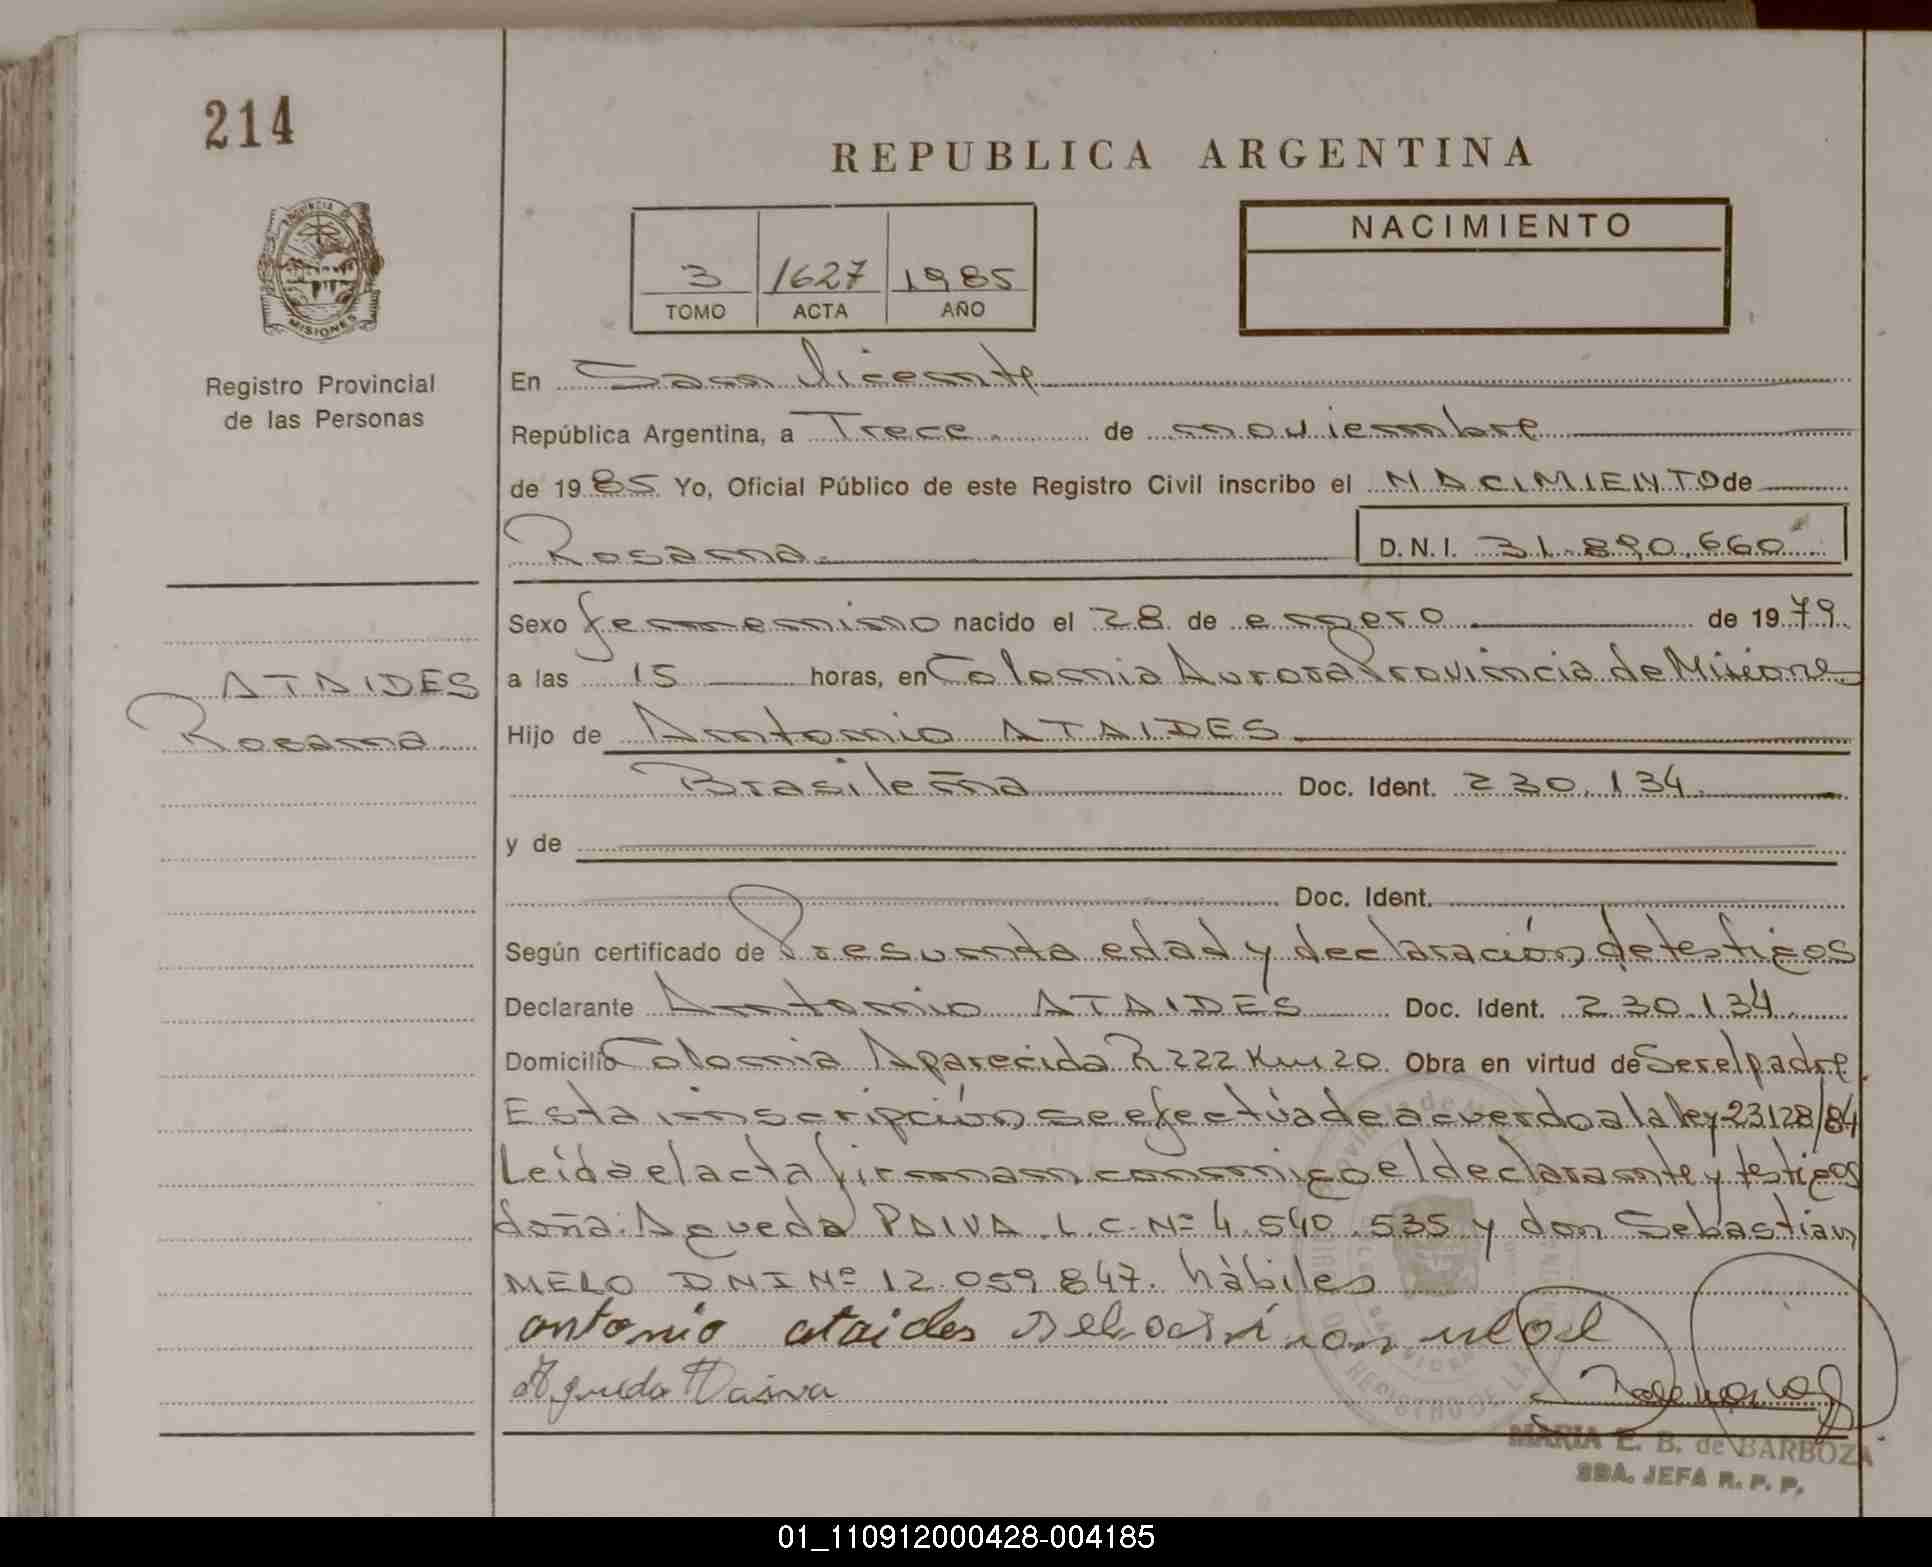 214
REPUBLICA ARGENTINA
PROVINCIA DE
MISIONES
Registro Provincial
de las Personas
3 1627 1985
TOMO ACTA AÑO
NACIMIENTO
En San Vicente
República Argentina, a Trece de noviembre
de 1985 Yo, Oficial Público de este Registro Civil inscribo el NACIMIENTO de
Rosana D.N.I. 31.890.660
Sexo femenino nacido el 28 de enero de 1979
ATAIDES
Rosana
a las 15 horas, en Colonia Aurora Provincia de Misiones
Hijo de Antonio ATAIDES
Brasileña Doc. Ident. 230.134
y de
Doc. Ident.
Según certificado de Presunta edad y declaración de testigos
Declarante Antonio ATAIDES Doc. Ident. 230.134
Domicilio Colonia Aparecida R 222 Km 20. Obra en virtud de Ser el padre.
Esta inscripción se efectúa de acuerdo a la ley 23128/84
Leída el acta firman conmigo el declarante y testigos
doña: Agueda PAIVA L.C. Nº 4.540.535 y don Sebastian
MELO DNI Nº 12.059.847. hábiles
antonio ataides
Agueda Paiva
MARIA E. B. de BARBOZA
SBA. JEFA R. P. P.
01_110912000428-004185